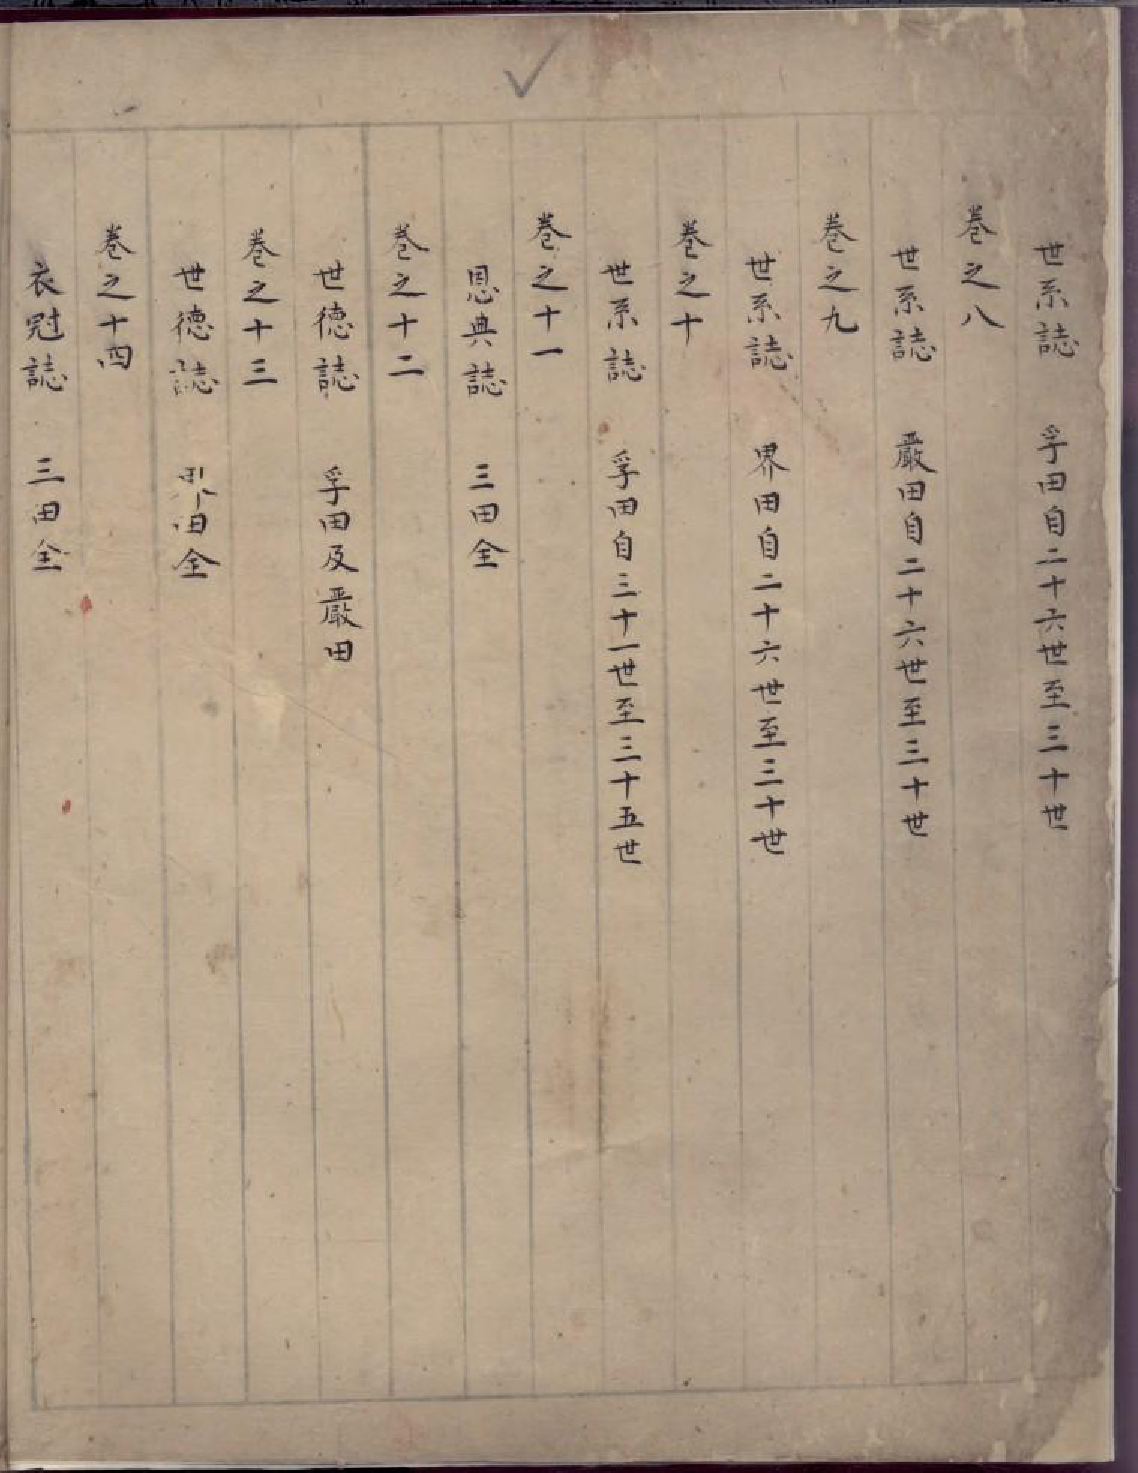 世系誌 孚田自二十六世至三十世
巻之八
世系誌 嚴田自二十六世至三十世
巻之九
世系誌 界田自二十六世至三十世
巻之十
世系誌 孚田自三十一世至三十五世
巻之十一
恩典誌 三田全
巻之十二
世德誌 孚田及嚴田
巻之十三
世德誌 界田全
巻之十四
衣冠誌 三田全